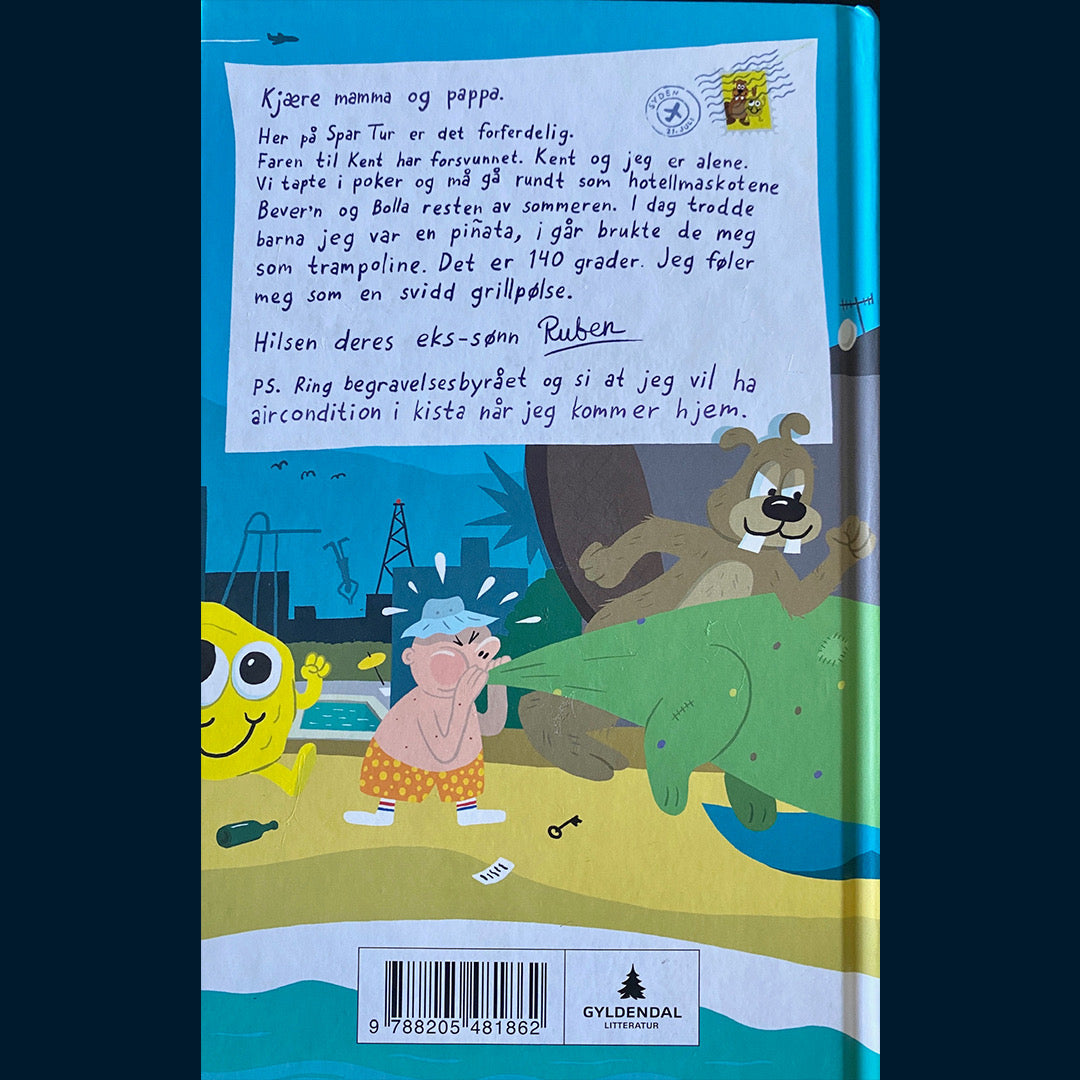 Kjære mamma og pappa.
SYDEN
21. JULI
Her på Spar Tur er det forferdelig.
Faren til Kent har forsvunnet. Kent og jeg er alene.
Vi tapte i poker og må gå rundt som hotellmaskotene
Bever'n og Bolla resten av sommeren. I dag trodde
barna jeg var en piñata, i går brukte de meg
som trampoline. Det er 140 grader. Jeg føler
meg som en svidd grillpølse.
Hilsen deres eks-sønn Ruben
PS. Ring begravelsesbyrået og si at jeg vil ha
aircondition i kista når jeg kommer hjem.
9 788205 481862
GYLDENDAL
LITTERATUR